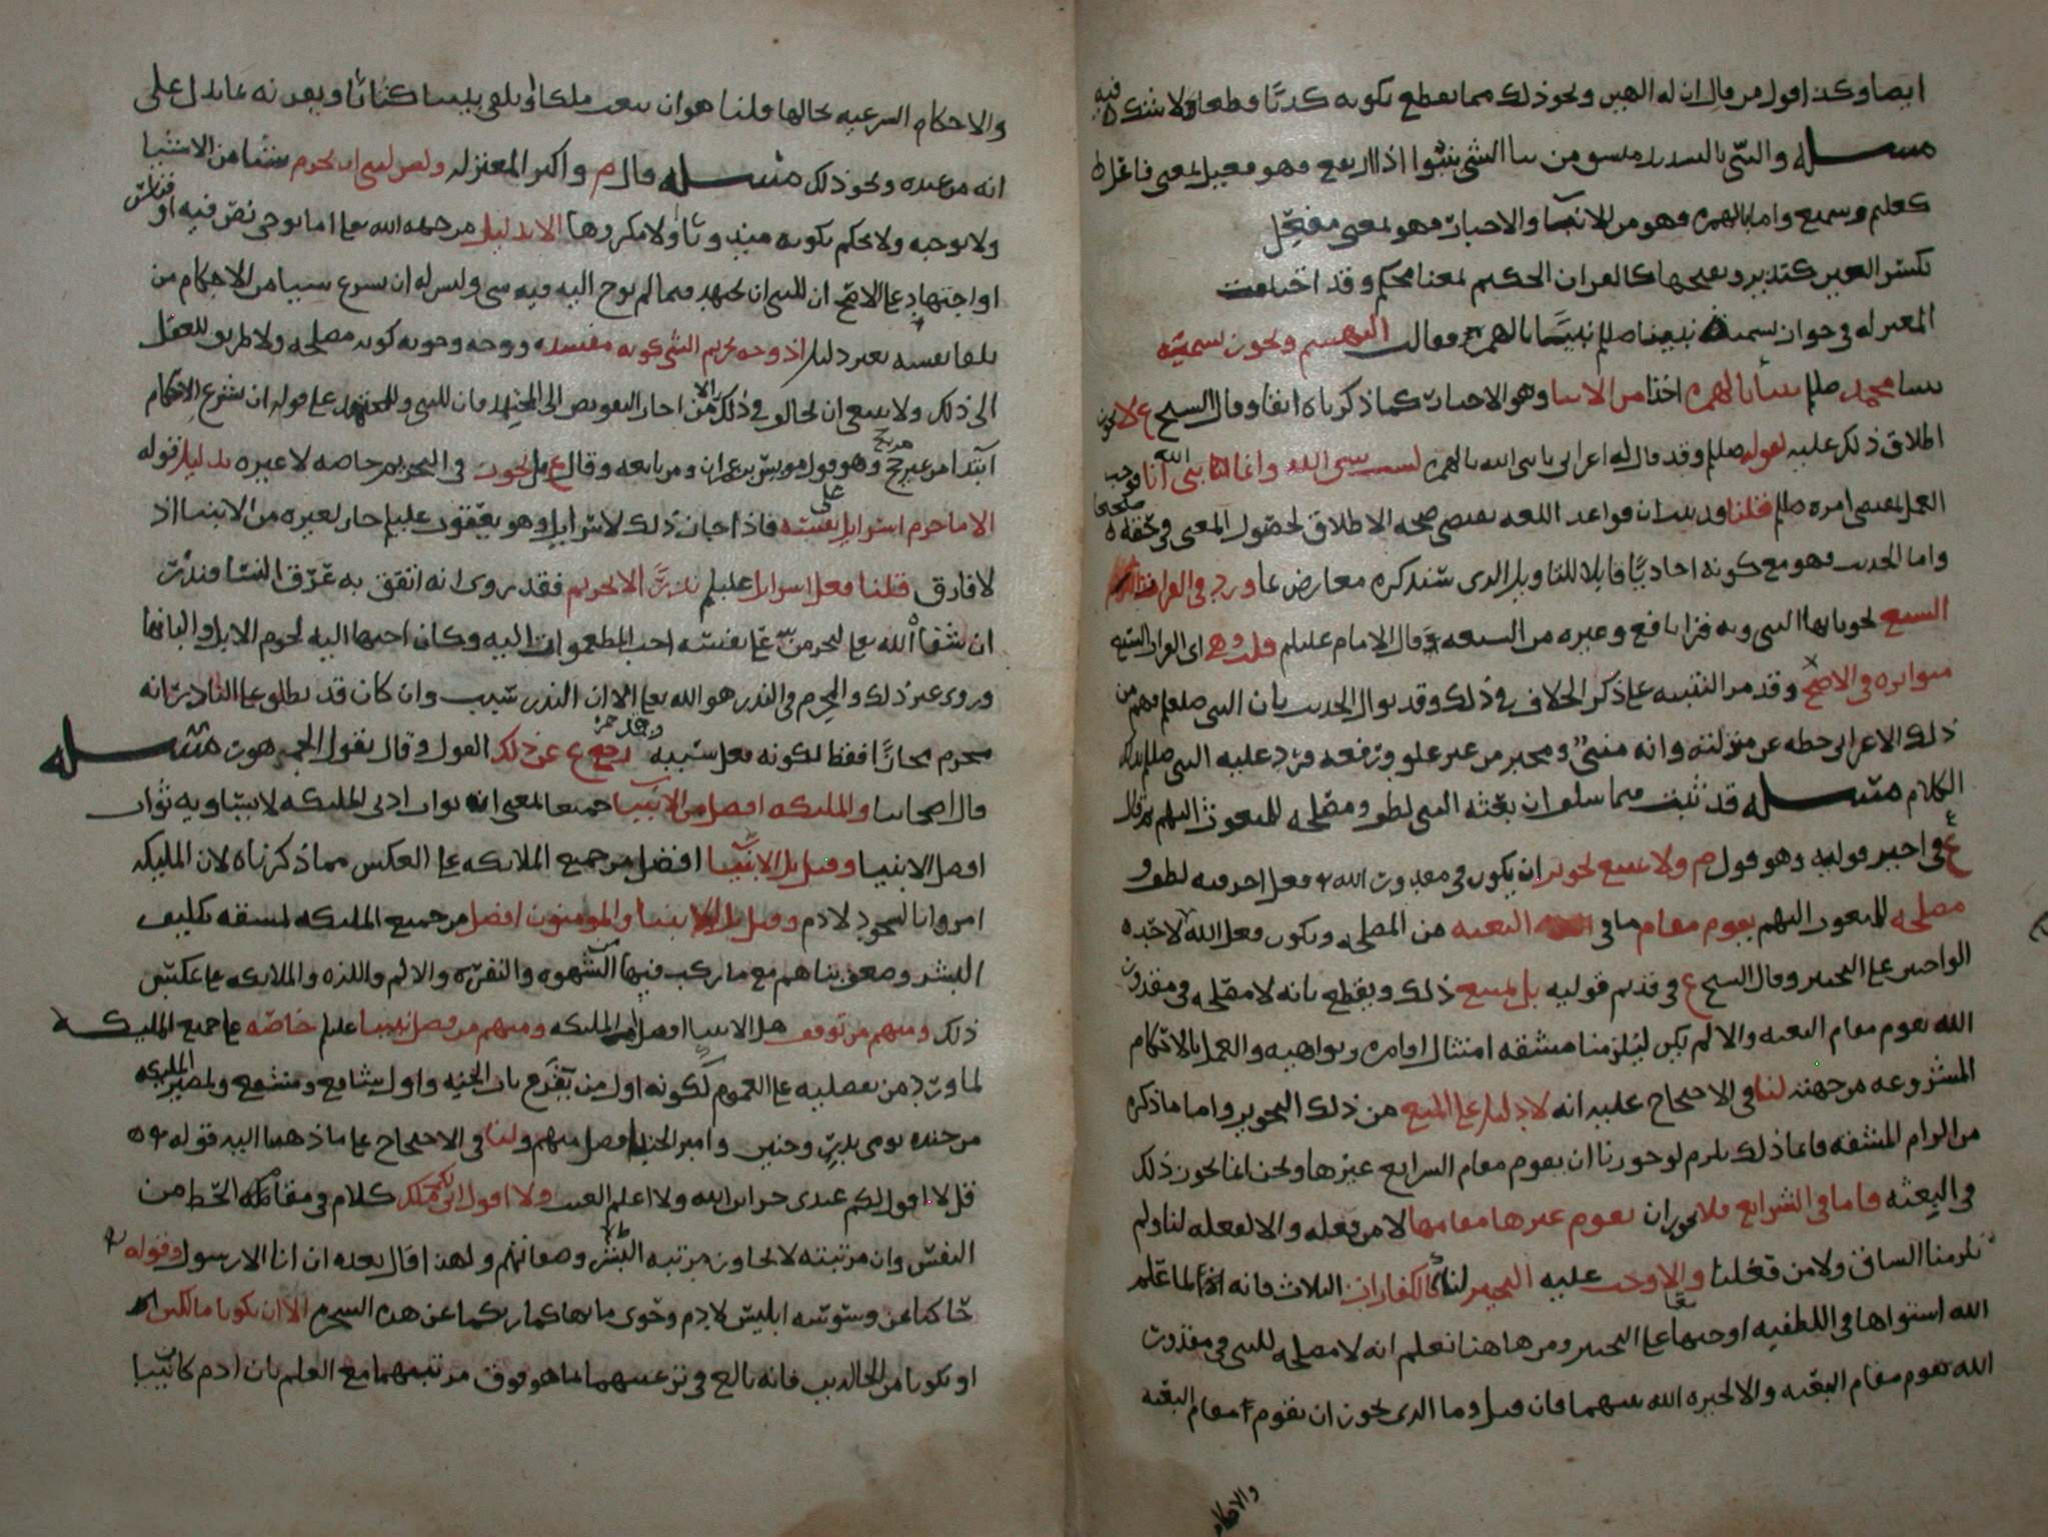 ايضا وكذا قول من قال ان له الهين ونحو ذلك مما يقطع بكونه كذبا قطعا ولا شك فيه
مسئله والنبي بالتشديد من نبا الشي ينبوا اذا ارتفع فهو فعيل لمعنى فاعل
كعليم وسميع واما بالهمزه فهو من الانبآ والاخبار فهو لمعنى مفعل
بكسر العين كنذير وبفتحها كالقران الحكيم لمعنا محكم وقد اختلفت
المعتزله في جواز تسمية نبينا صللم نبيئا بالهمزه فقالت البهشميه ويجوز تسمية
نبينا محمد صللم نبيأ بالهمزه اخذا من الانبا وهو الاخبار كما ذكرناه انفا وقال الشيخ ع لا يجوز
اطلاق ذلك عليه لقوله صللم وقد قال له اعرابي يا نبي الله بالهمزه لست بنبي الله وانما انا نبي الله فوجب
العمل بمقتضى امره صللم قلنا قد ثبت ان قواعد اللغه تقتضي صحه الاطلاق لحصول المعنى في حقه
واما الحديث فهو مع كونه احاديا قابلا للتاويل الذي سنذكره معارض بما ورد في القراات
السبع نحو يايها النبي وبه قرا نافع وغيره من السبعه وقال الامام عليلم قلت وهي اي القراات السبع
متواتره في الاصح وقد مر التنبيه على ذكر الخلاف في ذلك وقد يوال الحديث بان النبي صلعم فهم من
ذلك الاعرابي حطه عن منزلته وانه منبئ ومخبر من غير علو ورفعه فرد عليه النبي صللم بذلك
الكلام مسئله قد ثبت فيما سلف ان بعثه النبي لطف ومصلحه للمبعوث اليهم ثم قال
ع في اخير قوليه وهو قول م ولا يمتنع تجويز ان يكون في مقدورات الله فعل اخر فيه لطف و
مصلحه للمبعوث اليهم يقوم مقام ما في البعثه من المصلحه ويكون فعل الله لاحدهما
الواجبين على التخيير وقال الشيخ ع في قديم قوليه بل يمتنع ذلك ويقطع بانه لا مصلحه في مقدورات
الله تقوم مقام البعثه والا لم يكن ليلزمنا مشقه امتثال اوامره ونواهيه والعمل بالاحكام
المشروعه من جهته لنا في الاحتجاج عليه انه لا دليل على المنع من ذلك التجويز واما ما ذكره
من الزام المشقه فانما ذلك يلزم لو جوزنا ان يقوم مقام الشرايع غيرها ونحن انما نجوز ذلك
في البعثه فاما في الشرايع فلا يجوز ان يقوم غيرها مقامها لا من فعله والا لفعله لنا ولم
يلزمنا الشاق ولا من فعلنا والا وجب عليه التخيير لنا كالكفارات الثلاث فانه لما علم
الله استواها في اللطفيه اوجبها على التخيير ومن هاهنا نعلم انه لا مصلحه للنبي في مقدورات
الله تقوم مقام البعثه والا لخيره الله بينهما فان قيل وما الذي يجوز ان يقوم مقام البعثه
والاحكام
والاحكام الشرعيه بحالها قلنا هو ان يبعث ملكا او يلقي بيننا كتابا ويقرنه بما يدل على
انه من عنده ونحو ذلك مسئله قال م واكثر المعتزله وليس لنبي ان يحرم شيئا من الاشيا
ولا يوجبه ولا يحكم بكونه مندوبا ولا مكروها الا بدليل من جهه الله تعالى اما بوحي نص فيه او قياس
او اجتهاد على الاصح ان للنبي ان يجتهد فيما لم يوح اليه فيه شي وليس له ان يشرع شيئا من الاحكام من
تلقا نفسه بغير دليل اذ وجه تحريم الشي كونه مفسده ووجه وجوبه كونه مصلحه ولا طريق للعقل
الى ذلك ولا ينبغي ان يخالف في ذلك الا من اجاز التفويض الى المجتهد فان للنبي وللمجتهد على قوله ان يشرع الاحكام
ابتدا من غير مرجح وهو قول مويس بن عمران ومن تابعه وقال ع بل يجوز في التحريم خاصه لا غيره بدليل قوله
الا ما حرم اسرائيل على نفسه فاذا جاز ذلك لاسرائيل وهو يعقوب عليلم جاز لغيره من الانبيا اذ
لا فارق قلنا فعل اسرائيل عليلم نذر لا تحريم فقد روي انه اتفق به عرق النسا فنذر
ان شفاه الله تعالى ليحرمن على نفسه احب المطعومات اليه وكان احبها اليه لحوم الابل والبانها
وروي غير ذلك والمحرم في النذر هو الله تعالى الا ان النذر سبب وان كان قد يطلق على الناذر انه
محرم مجازا فقط لكونه فعل سببه وقد رجع ع عن ذلك القول وقال بقول الجمهور مسئله
قال اصحابنا والمليكه افضل من الانبيا جميعا لمعنى انه ثواب ادنى المليكه لا يساويه ثواب
افضل الانبيا وقيل بل الانبيا افضل من جميع الملائكه على العكس مما ذكرناه لان المليكه
امروا بالسجود لادم وقيل بل الانبيا والمومنون افضل من جميع المليكه لمشقه تكليف
البشر وصعوبتها هم مع ما ركب فيهم من الشهوه والنفره والالم واللذه والملائكه على عكس
ذلك ومنهم من توقف هل الانبيا افضل ام المليكه ومنهم من فضل نبينا عليلم خاصه على جميع المليكه
لما ورد من تفضليه على العموم لكونه اول من يقرع باب الجنه واول شافع ومشفع ولمصير المليكه
من جنده يومي بدر وحنين وامير الجند افضل منهم ولنا في الاحتجاج على ما ذهبنا اليه قوله
قل لا اقول لكم عندي خزاين الله ولا اعلم الغيب ولا اقول لكم اني ملك كلام في مقام الحط من
النفس وان مرتبته لا تجاوز مرتبه البشر وصفاتهم ولهذا قال بعده ان انا الا رسول وقوله
حاكيا عن وسوسه ابليس لادم وحوى ما نهاكما ربكما عن هذه الشجره الا ان تكونا ملكين
او تكونا من الخالدين فانه بالغ في ترغيبهما بما هو فوق مرتبتهما مع العلم بان ادم كان نبيا